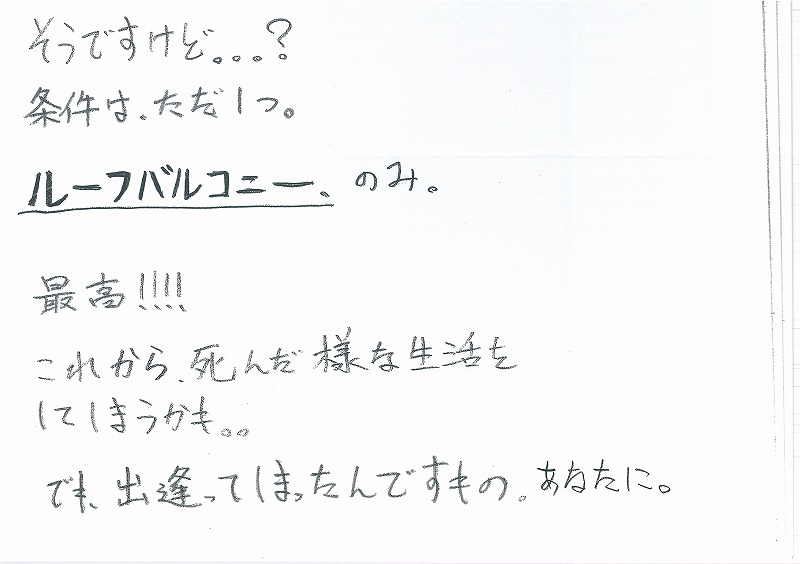 そうですけど。。。?
条件は、ただ1つ。
ルーフバルコニー、のみ。
最高!!!!
これから、死んだ様な生活を
してしまうかも。。
でも、出逢ってしまったんですもの。あなたに。